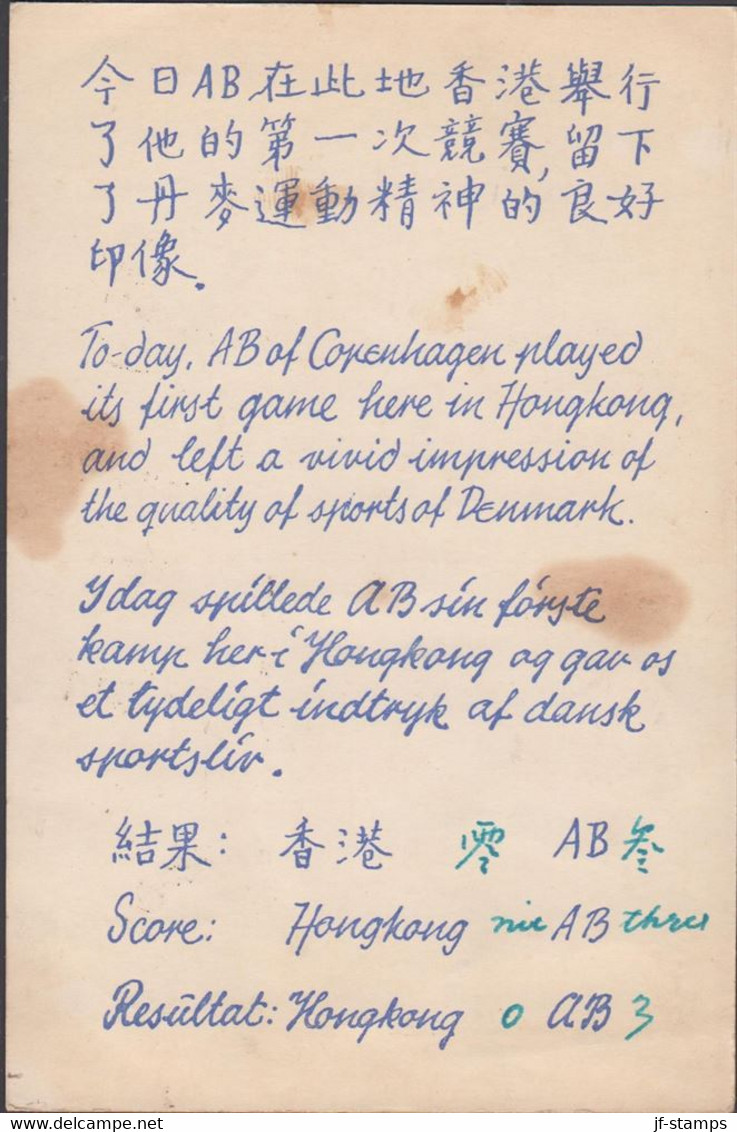 今日AB在此地香港舉行
了他的第一次競賽,留下
了丹麥運動精神的良好
印像.
To-day, AB of Copenhagen played
its first game here in Hongkong,
and left a vivid impression of
the quality of sports of Denmark.
Ydag spillede AB sin förste
kamp her i Hongkong og gav os
et tydeligt indtryk af dansk
sportsliv.
結果: 香港 零 AB 叁
Score: Hongkong AB three
Resultat: Hongkong 0 AB 3
jf-stamps